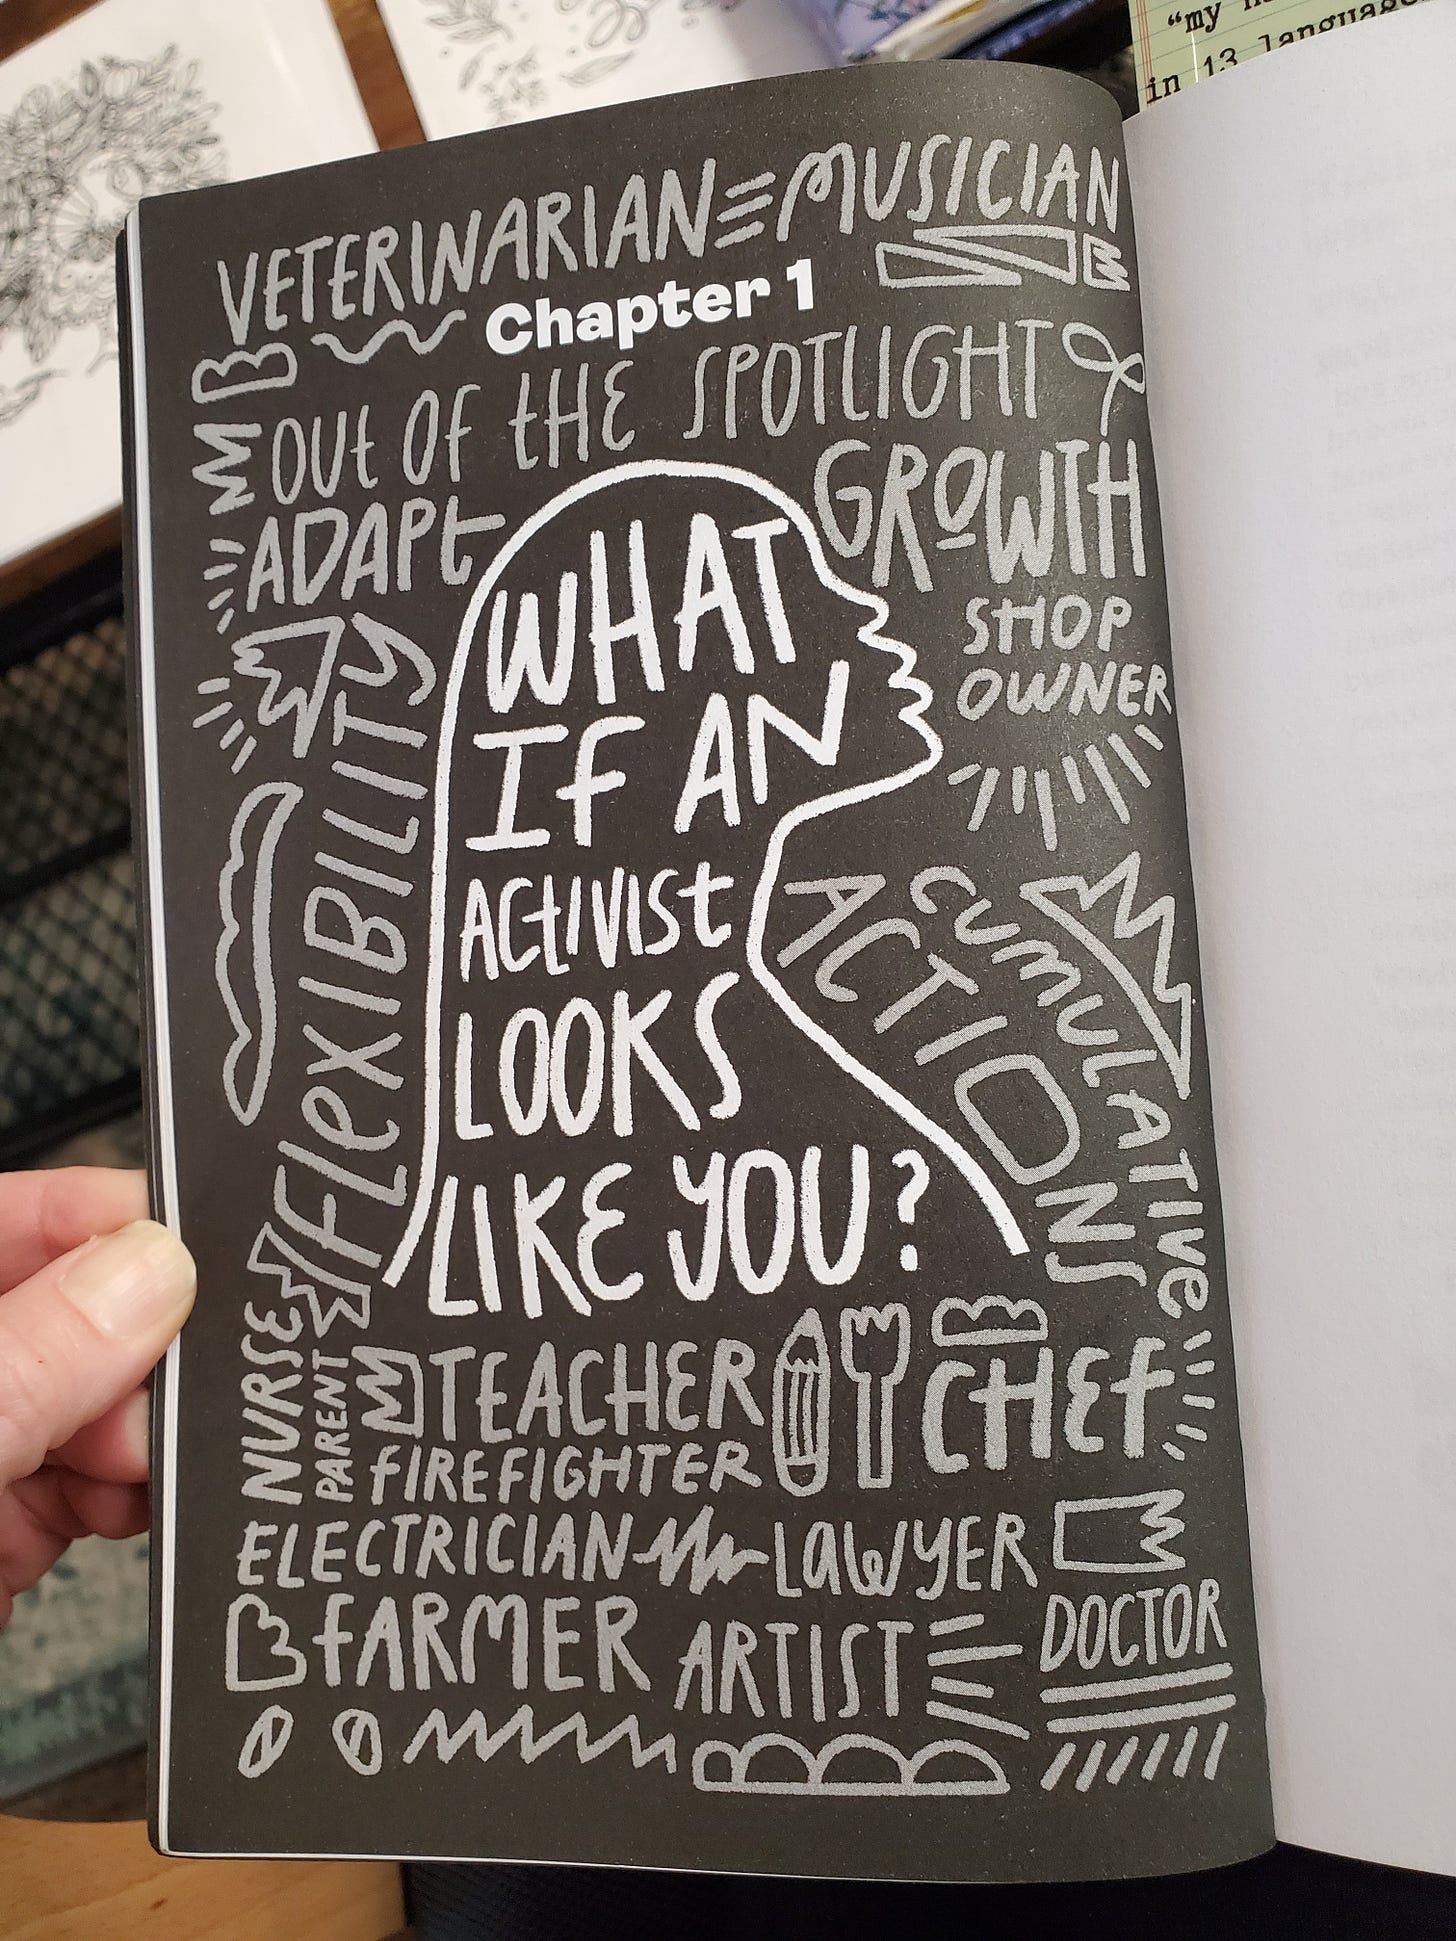 "my
in 13 languages
VETERINARIAN MUSICIAN
Chapter 1
OUT OF THE SPOTLIGHT
ADAPT GROWTH
FLEXIBILITY
SHOP
OWNER
WHAT
IF AN
ACTIVIST
LOOKS
LIKE YOU?
CUMULATIVE
ACTIONS
NURSE
PARENT
TEACHER CHEF
FIREFIGHTER
ELECTRICIAN LAWYER
FARMER ARTIST DOCTOR